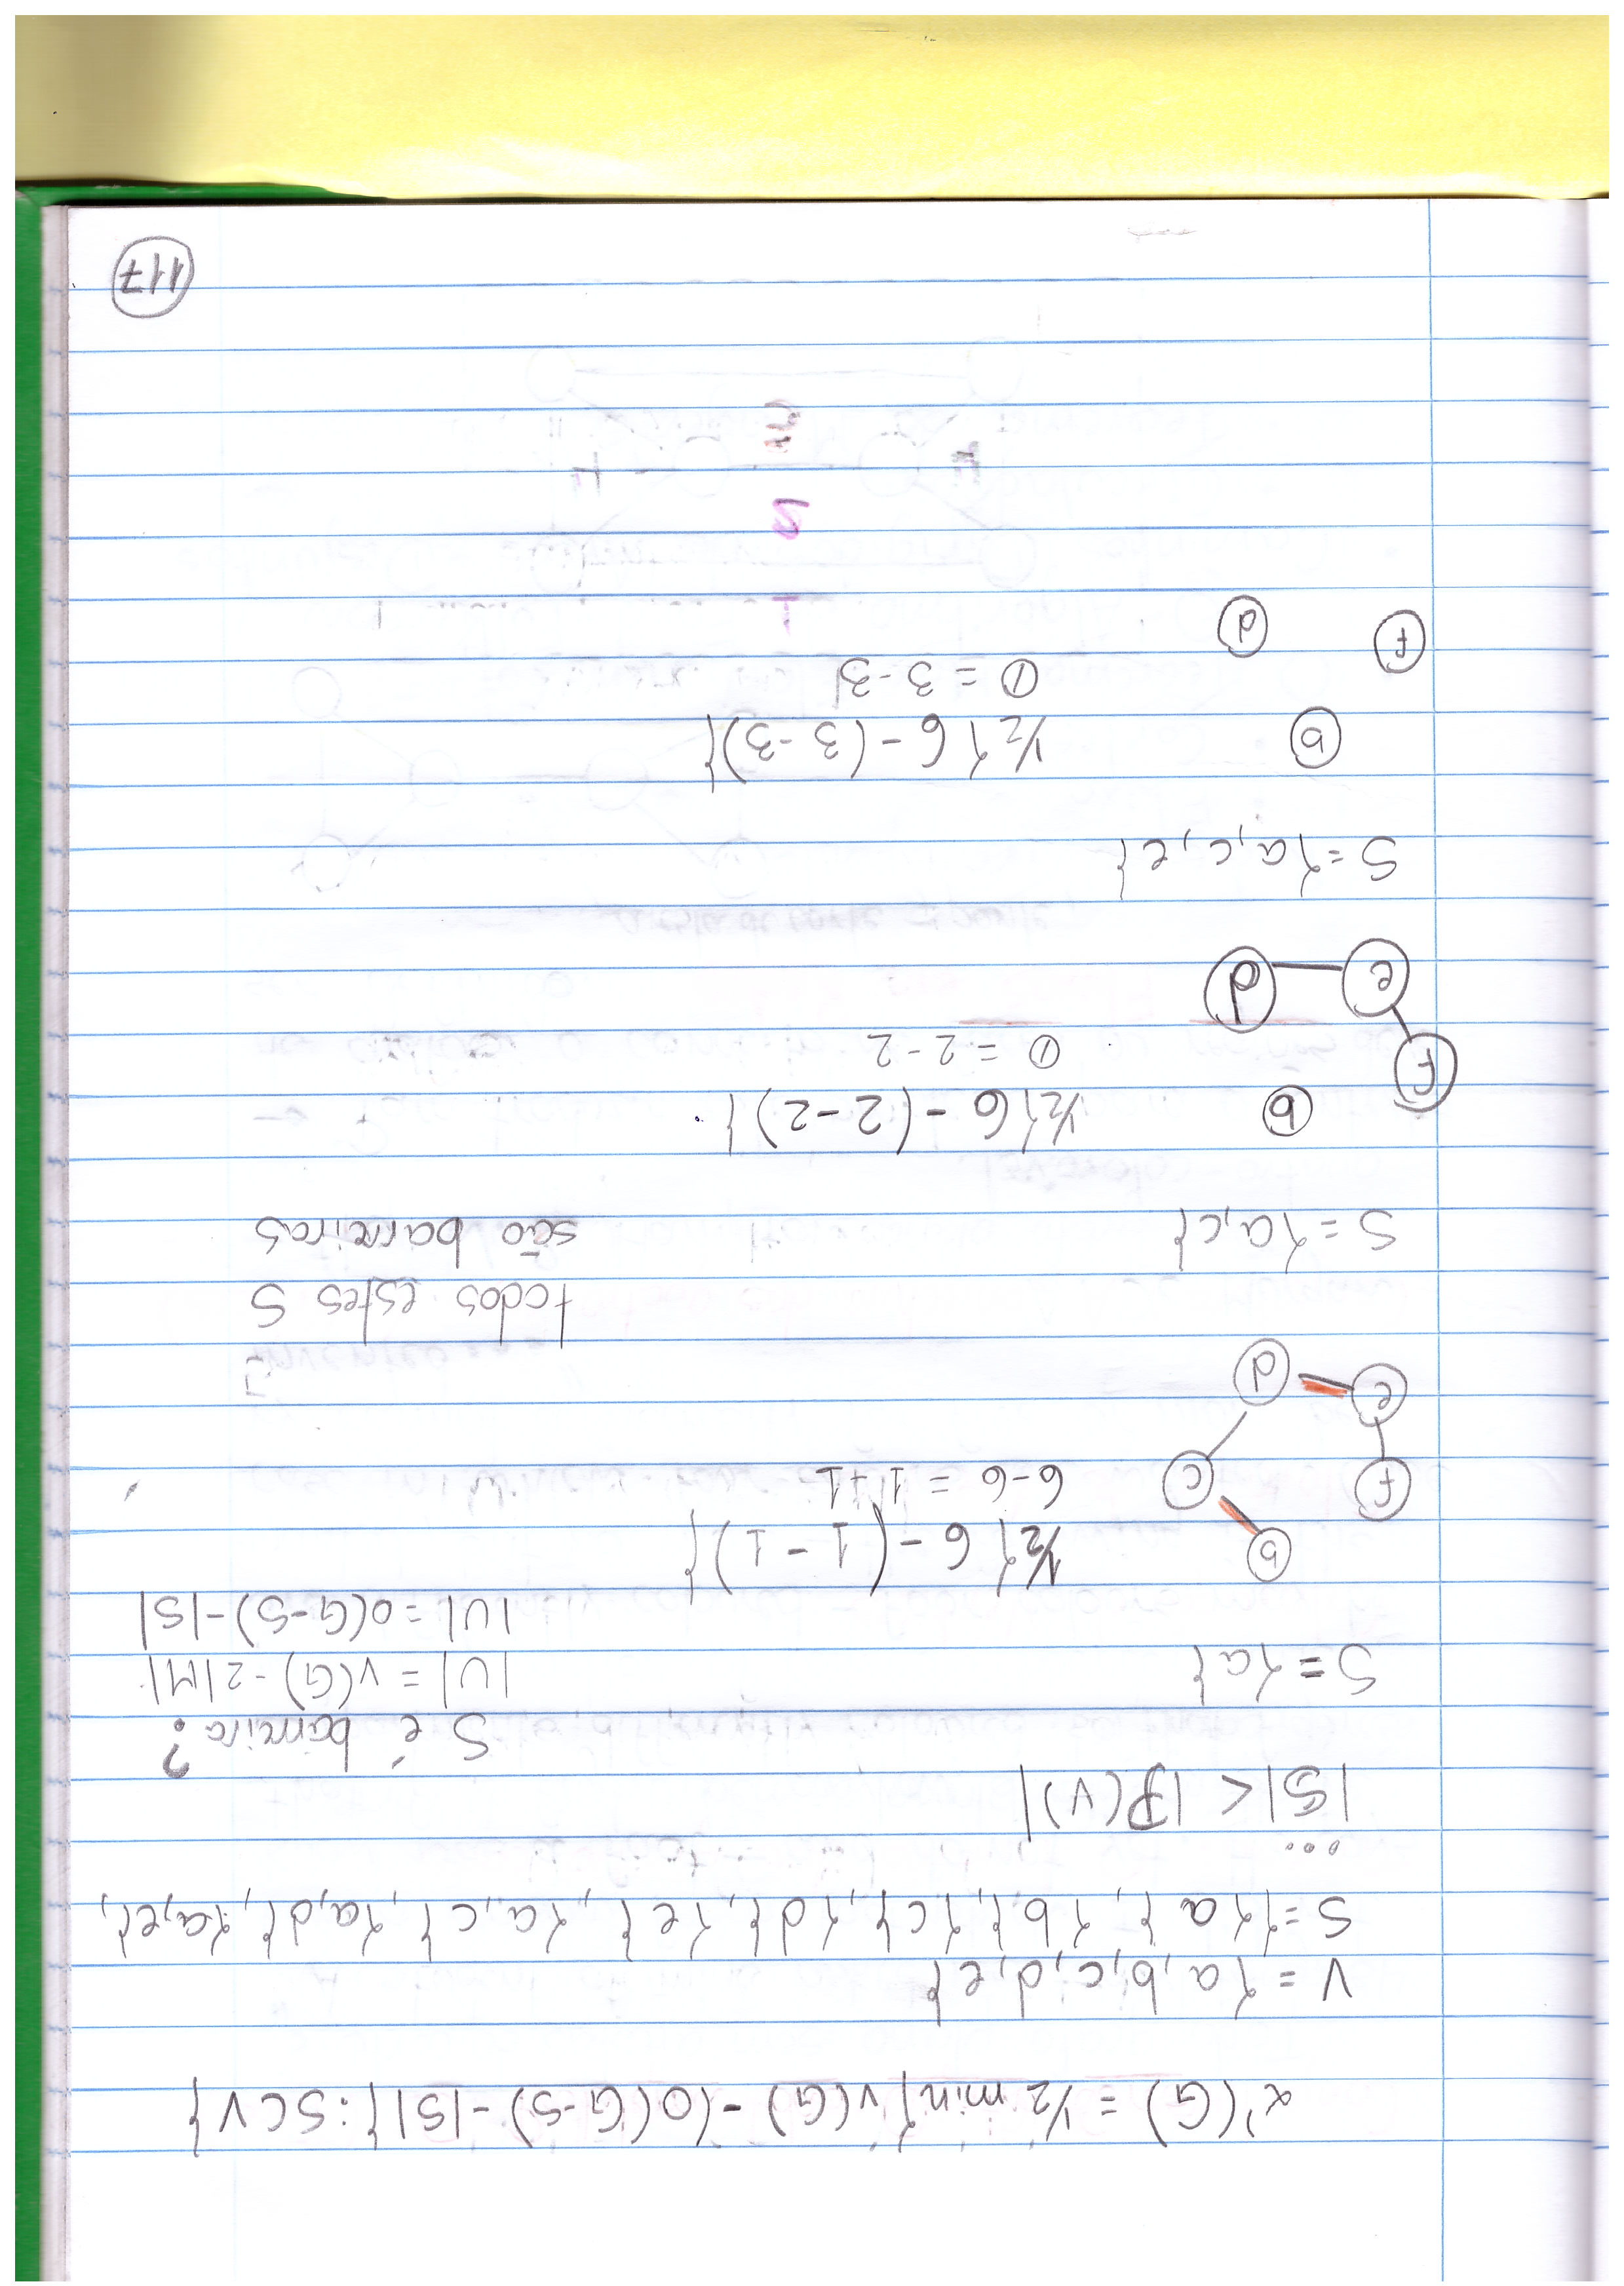 α'(G) = 1/2 min{ v(G) - (o(G-S) - |S| } : S ⊂ V }
V = {a, b, c, d, e}
S = {{a}, {b}, {c}, {d}, {e}, {a, c}, {a, d}, {a, e},
...
|S| < |P(V)|
S é barreira?
|U| = v(G) - 2|M|
|U| = o(G-S) - |S|
S = {a}
b
f
c
e
d
1/2{ 6 - (1 - 1) }
6 - 6 = 1 + 1
todos estes S
são barreiras
S = {a, c}
b
f
e
d
1/2{ 6 - (2 - 2) }
0 = 2 - 2
S = {a, c, e}
b
f
d
1/2{ 6 - (3 - 3) }
0 = 3 - 3
117